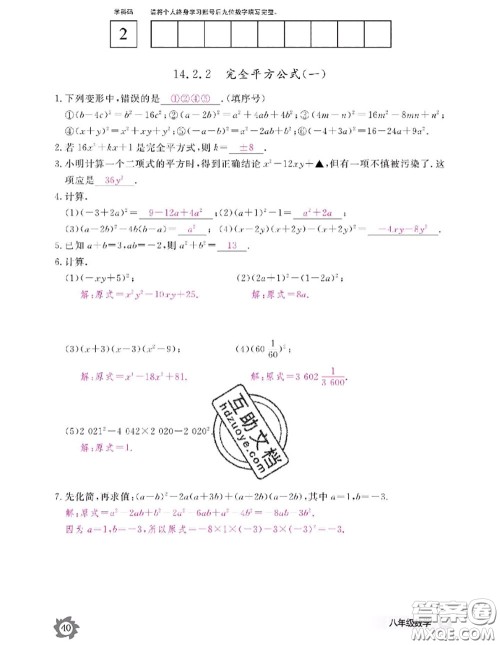 学科码 请将个人终身学习帐号后九位数字填写完整。
2
14.2.2 完全平方公式(一)
1.下列变形中,错误的是 ①②④⑤ .(填序号)
①(b-4c)²=b²-16c²;②(a-2b)²=a²+4ab+4b²;③(4m-n)²=16m²-8mn+n²;
④(x+y)²=x²+xy+y²;⑤(-a-b)²=a²-2ab+b²;⑥(-4+3a)²=16-24a+9a².
2.若16x²+kx+1是完全平方式,则k= ±8 .
3.小明计算一个二项式的平方时,得到正确结论x²-12xy+▲,但有一项不慎被污染了.这
项应是 36y² .
4.计算.
(1)(-3+2a)²= 9-12a+4a² ;(2)(a+1)²-1= a²+2a ;
(3)(a-2b)²-4b(b-a)= a² ;(4)(x-2y)(x+2y)-(x+2y)²= -4xy-8y² .
5.已知a+b=3,ab=-2,则a²+b²= 13 .
6.计算.
(1)(-xy+5)²; (2)(2a+1)²-(1-2a)²;
解:原式=x²y²-10xy+25. 解:原式=8a.
(3)(x+3)(x-3)(x²-9); (4)(60 1/60)²;
解:原式=x⁴-18x²+81. 解:原式=3 602 1/3 600.
(5)2 021²-4 042×2 020+2 020².
解:原式=1.
互助文档
hdzuoye.com
7.先化简,再求值:(a-b)²-2a(a+3b)+(a+2b)(a-2b),其中a=1,b=-3.
解:原式=a²-2ab+b²-2a²-6ab+a²-4b²=-8ab-3b².
因为a=1,b=-3,所以原式=-8×1×(-3)-3×(-3)²=-3.
40
八年级数学